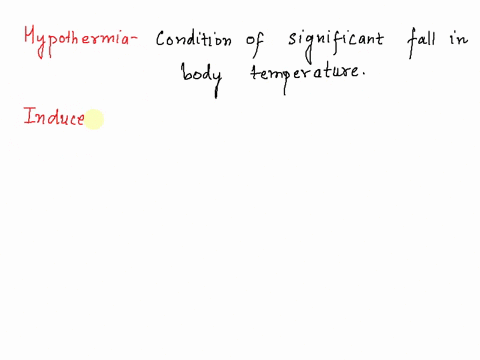 Hypothermia- Condition of significant fall in
body temperature.
Induce